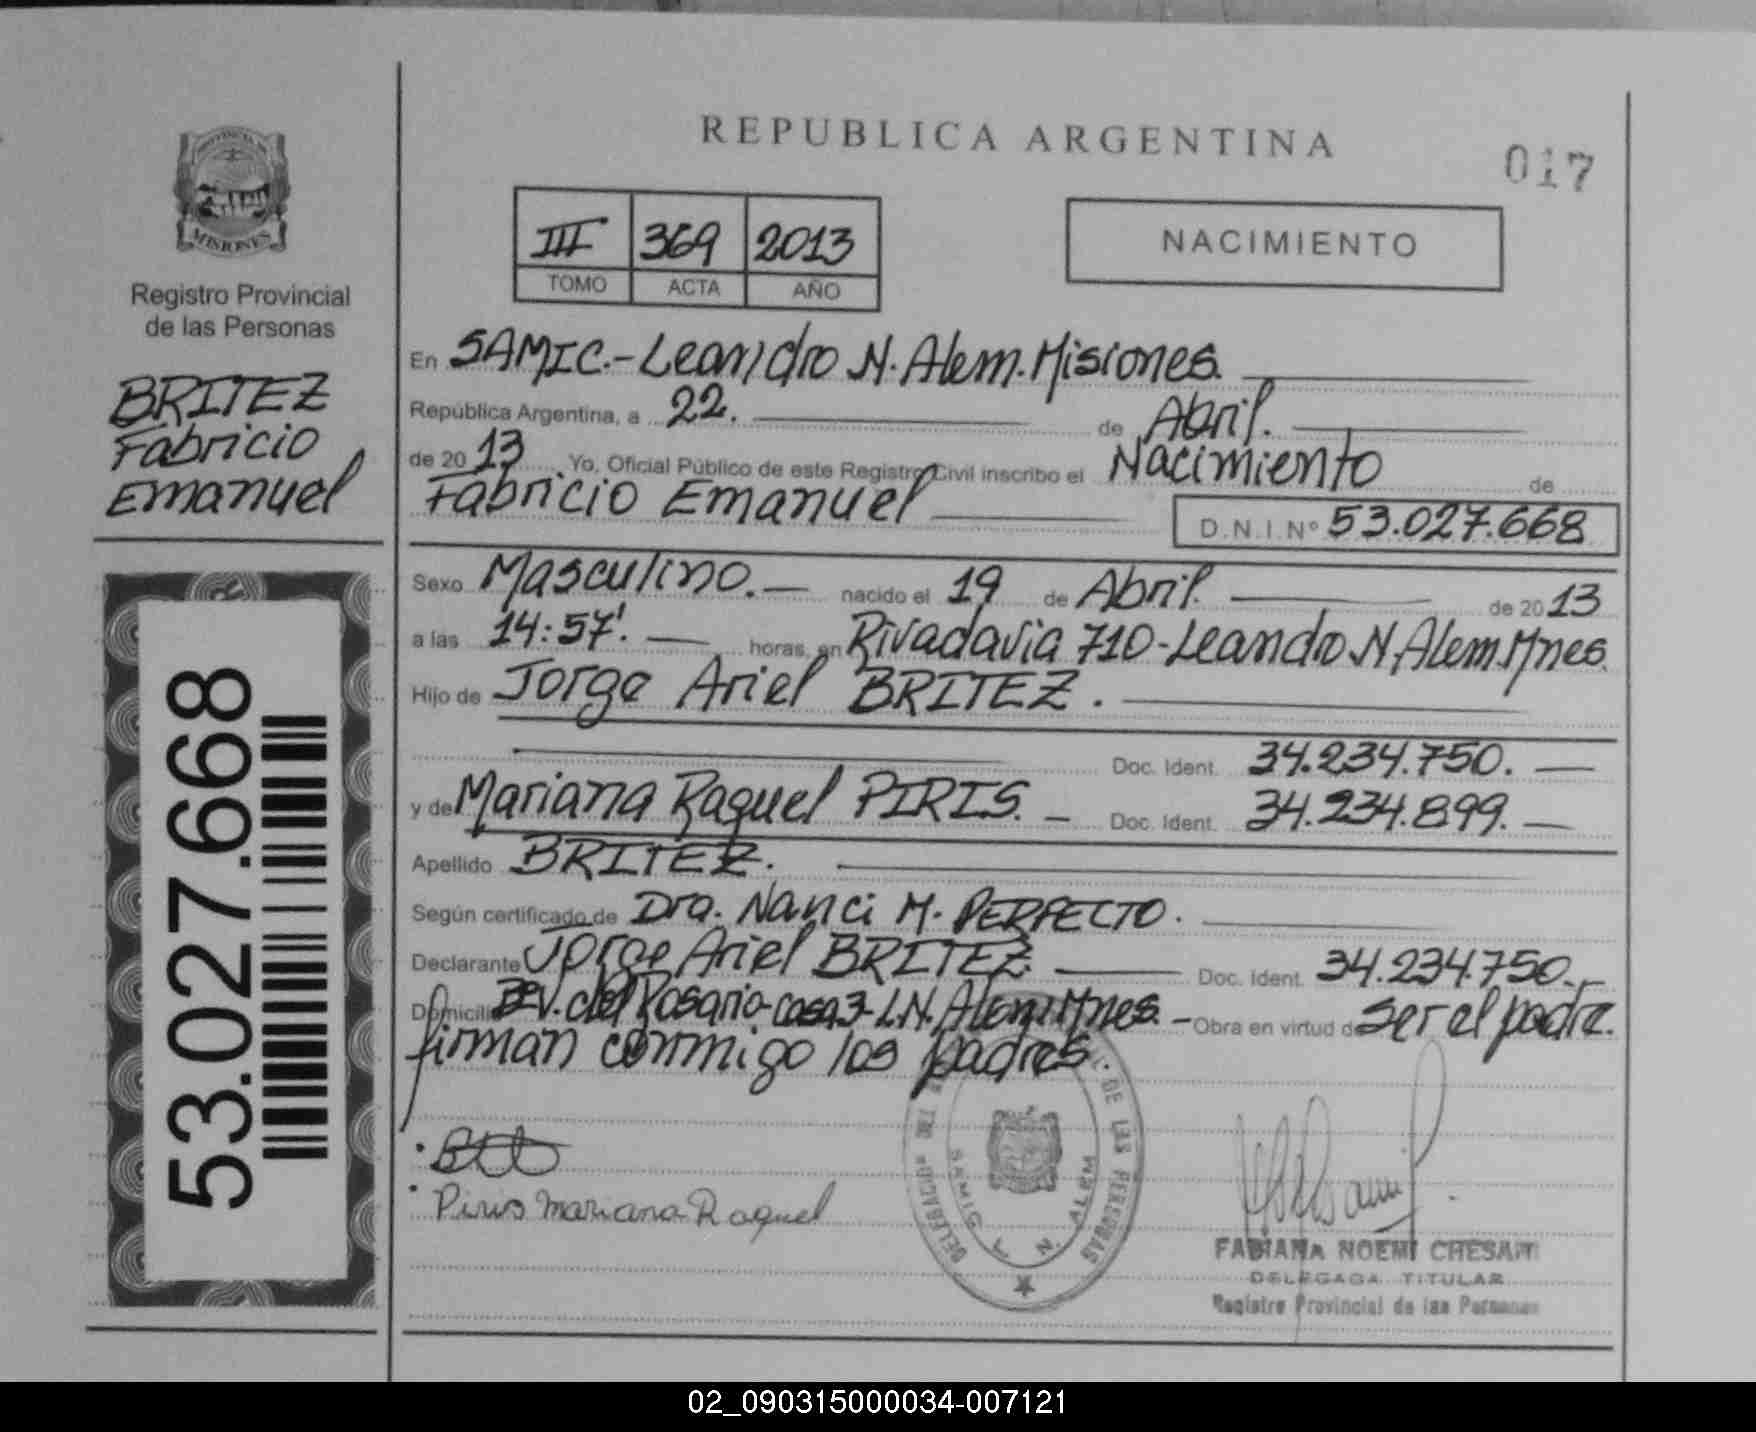 REPUBLICA ARGENTINA
017
PROVINCIA DE
MISIONES
Registro Provincial
de las Personas
BRITEZ
Fabricio
Emanuel
53.027.668
III 369 2013
TOMO ACTA AÑO
NACIMIENTO
En SAMIC.-Leandro N. Alem. Misiones.
República Argentina, a 22. de Abril.
de 2013 Yo, Oficial Público de este Registro Civil inscribo el Nacimiento de
Fabricio Emanuel D.N.I.Nº 53.027.668
Sexo Masculino. nacido el 19 de Abril. de 2013
a las 14:57'. horas, en Rivadavia 710-Leandro N. Alem Mnes.
Hijo de Jorge Ariel BRITEZ.
Doc. Ident. 34.234.750.
y de Mariana Raquel PIRIS. Doc. Ident. 34.234.899.
Apellido BRITEZ.
Según certificado de Dra. Nanci M. PERFECTO.
Declarante Jorge Ariel BRITEZ. Doc. Ident. 34.234.750.
Domicilio del Rosario-casa 3-L.N. Alem Mnes. Obra en virtud de ser el padre.
firman conmigo los padres.
Piris Mariana Raquel
DELEGACION DE LAS PERSONAS
SAMIC
A N. ALEM
FABIANA NOEMI CHESANI
DELEGADA TITULAR
Registro Provincial de las Personas
02_090315000034-007121